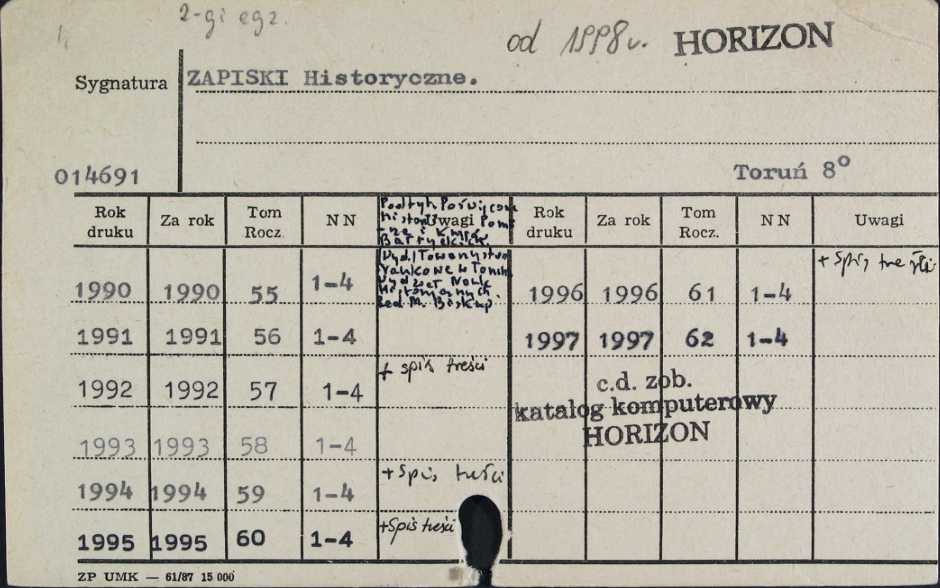 2-gi egz.
od 1998 r. HORIZON
Sygnatura ZAPISKI Historyczne.
014691 Toruń 8o
Rok druku Za rok Tom Rocz. N N Uwagi Rok druku Za rok Tom Rocz. N N Uwagi
Podtyt. Poświęcone
Historii Pomo
rza i
Bałtyckich.
Wyd. Towarzystwo
Naukowe w Toruniu
Wydział Nauk
Historycznych
Red. M. Biskup.
1990 1990 55 1-4 1996 1996 61 1-4 + Spis treści
1991 1991 56 1-4 1997 1997 62 1-4
1992 1992 57 1-4 + spis treści
c.d. zob.
katalog komputerowy
HORIZON
1993 1993 58 1-4
1994 1994 59 1-4 + Spis treści
1995 1995 60 1-4 + Spis treści
ZP UMK — 61/87 15 000